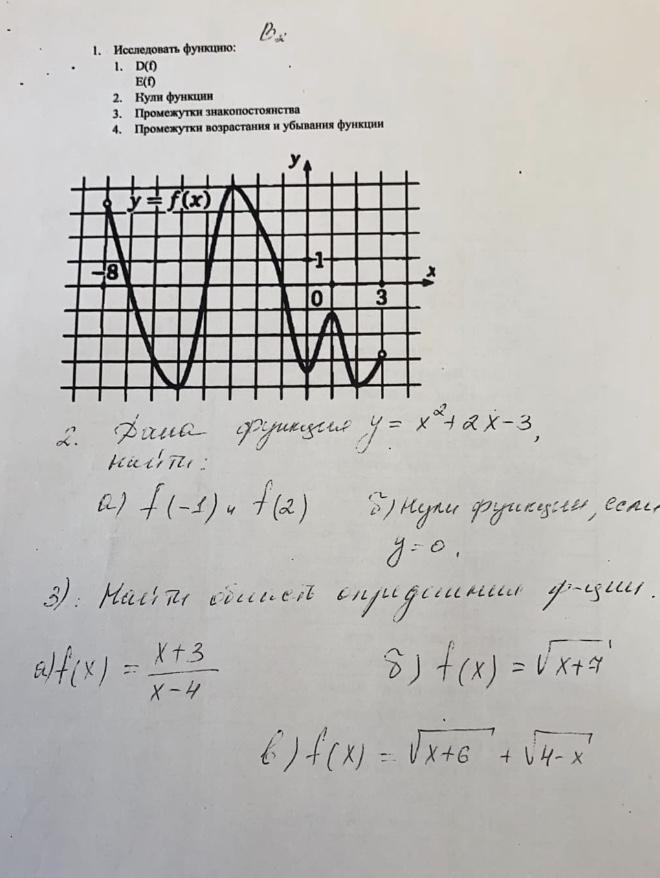 В2
1. Исследовать функцию:
1. D(f)
E(f)
2. Кули функции
3. Промежутки знакопостоянства
4. Промежутки возрастания и убывания функции
y
y = f(x)
-8
1
x
0
3
2. Дана функция y = x² + 2x - 3,
найти:
а) f(-1) и f(2) б) Нули функции, если
y = 0.
3). Найти область определения ф-ции.
а) f(x) = (x+3)/(x-4) б) f(x) = √(x+7)
в) f(x) = √(x+6) + √(4-x)